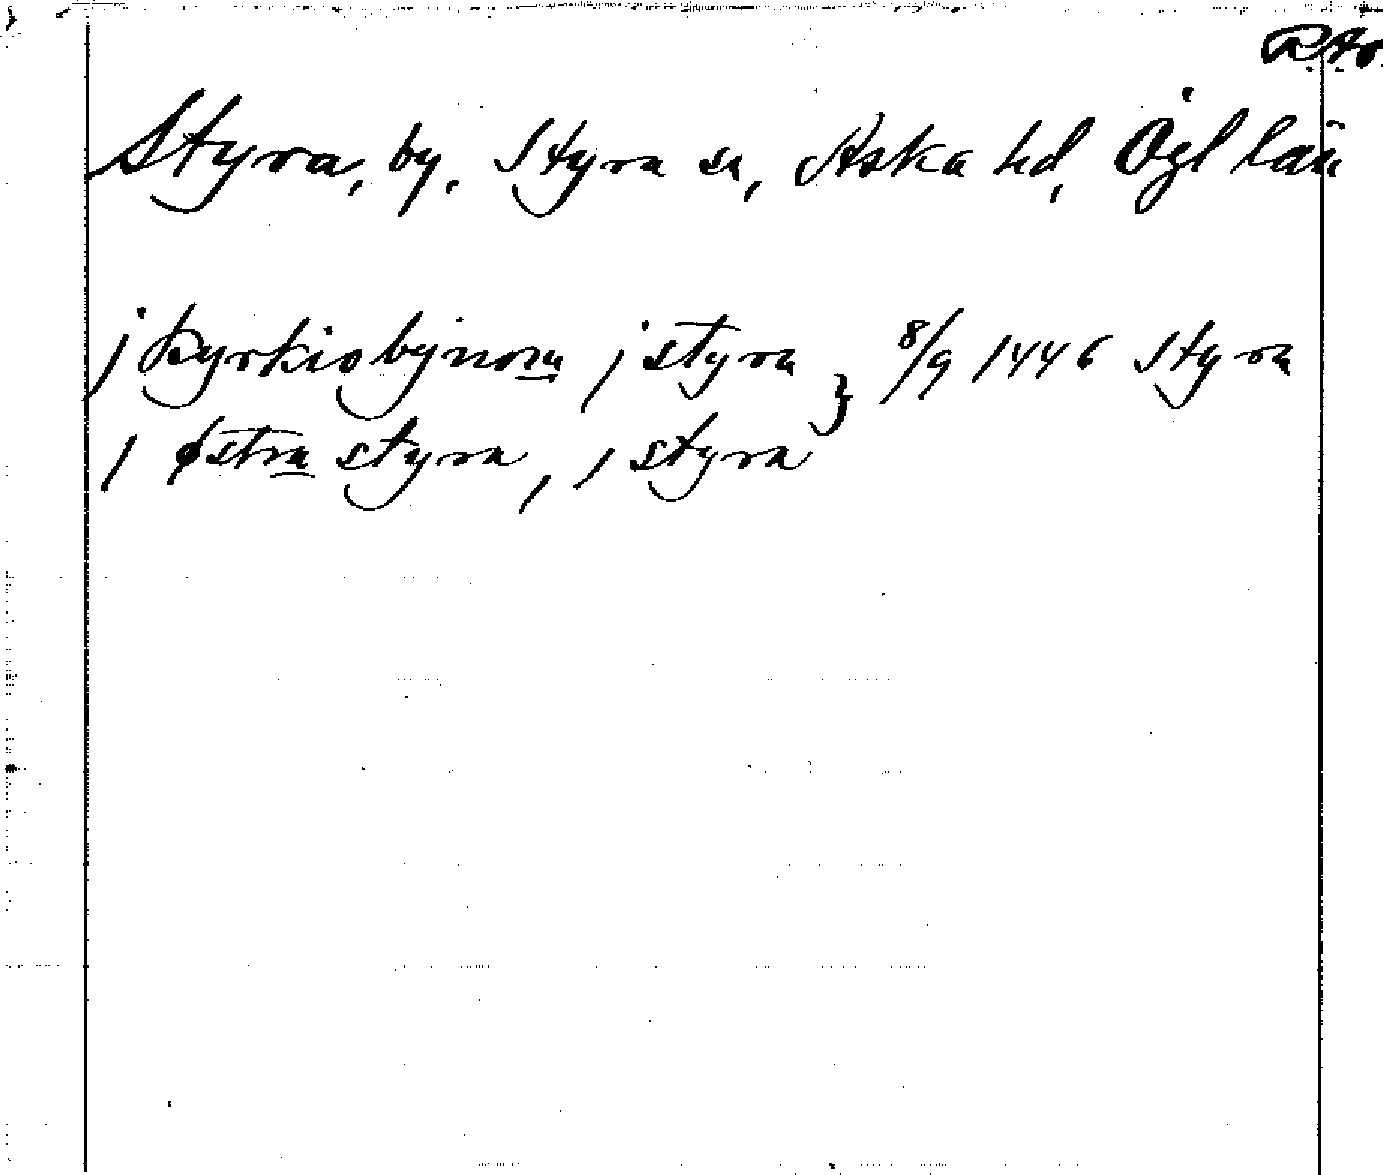 R.A.
Styra, by, Styra sn, Aska hd, Ögl län
j kyrkiobynom j styra } 8/9 1446 Styra
j østra styra, j styra